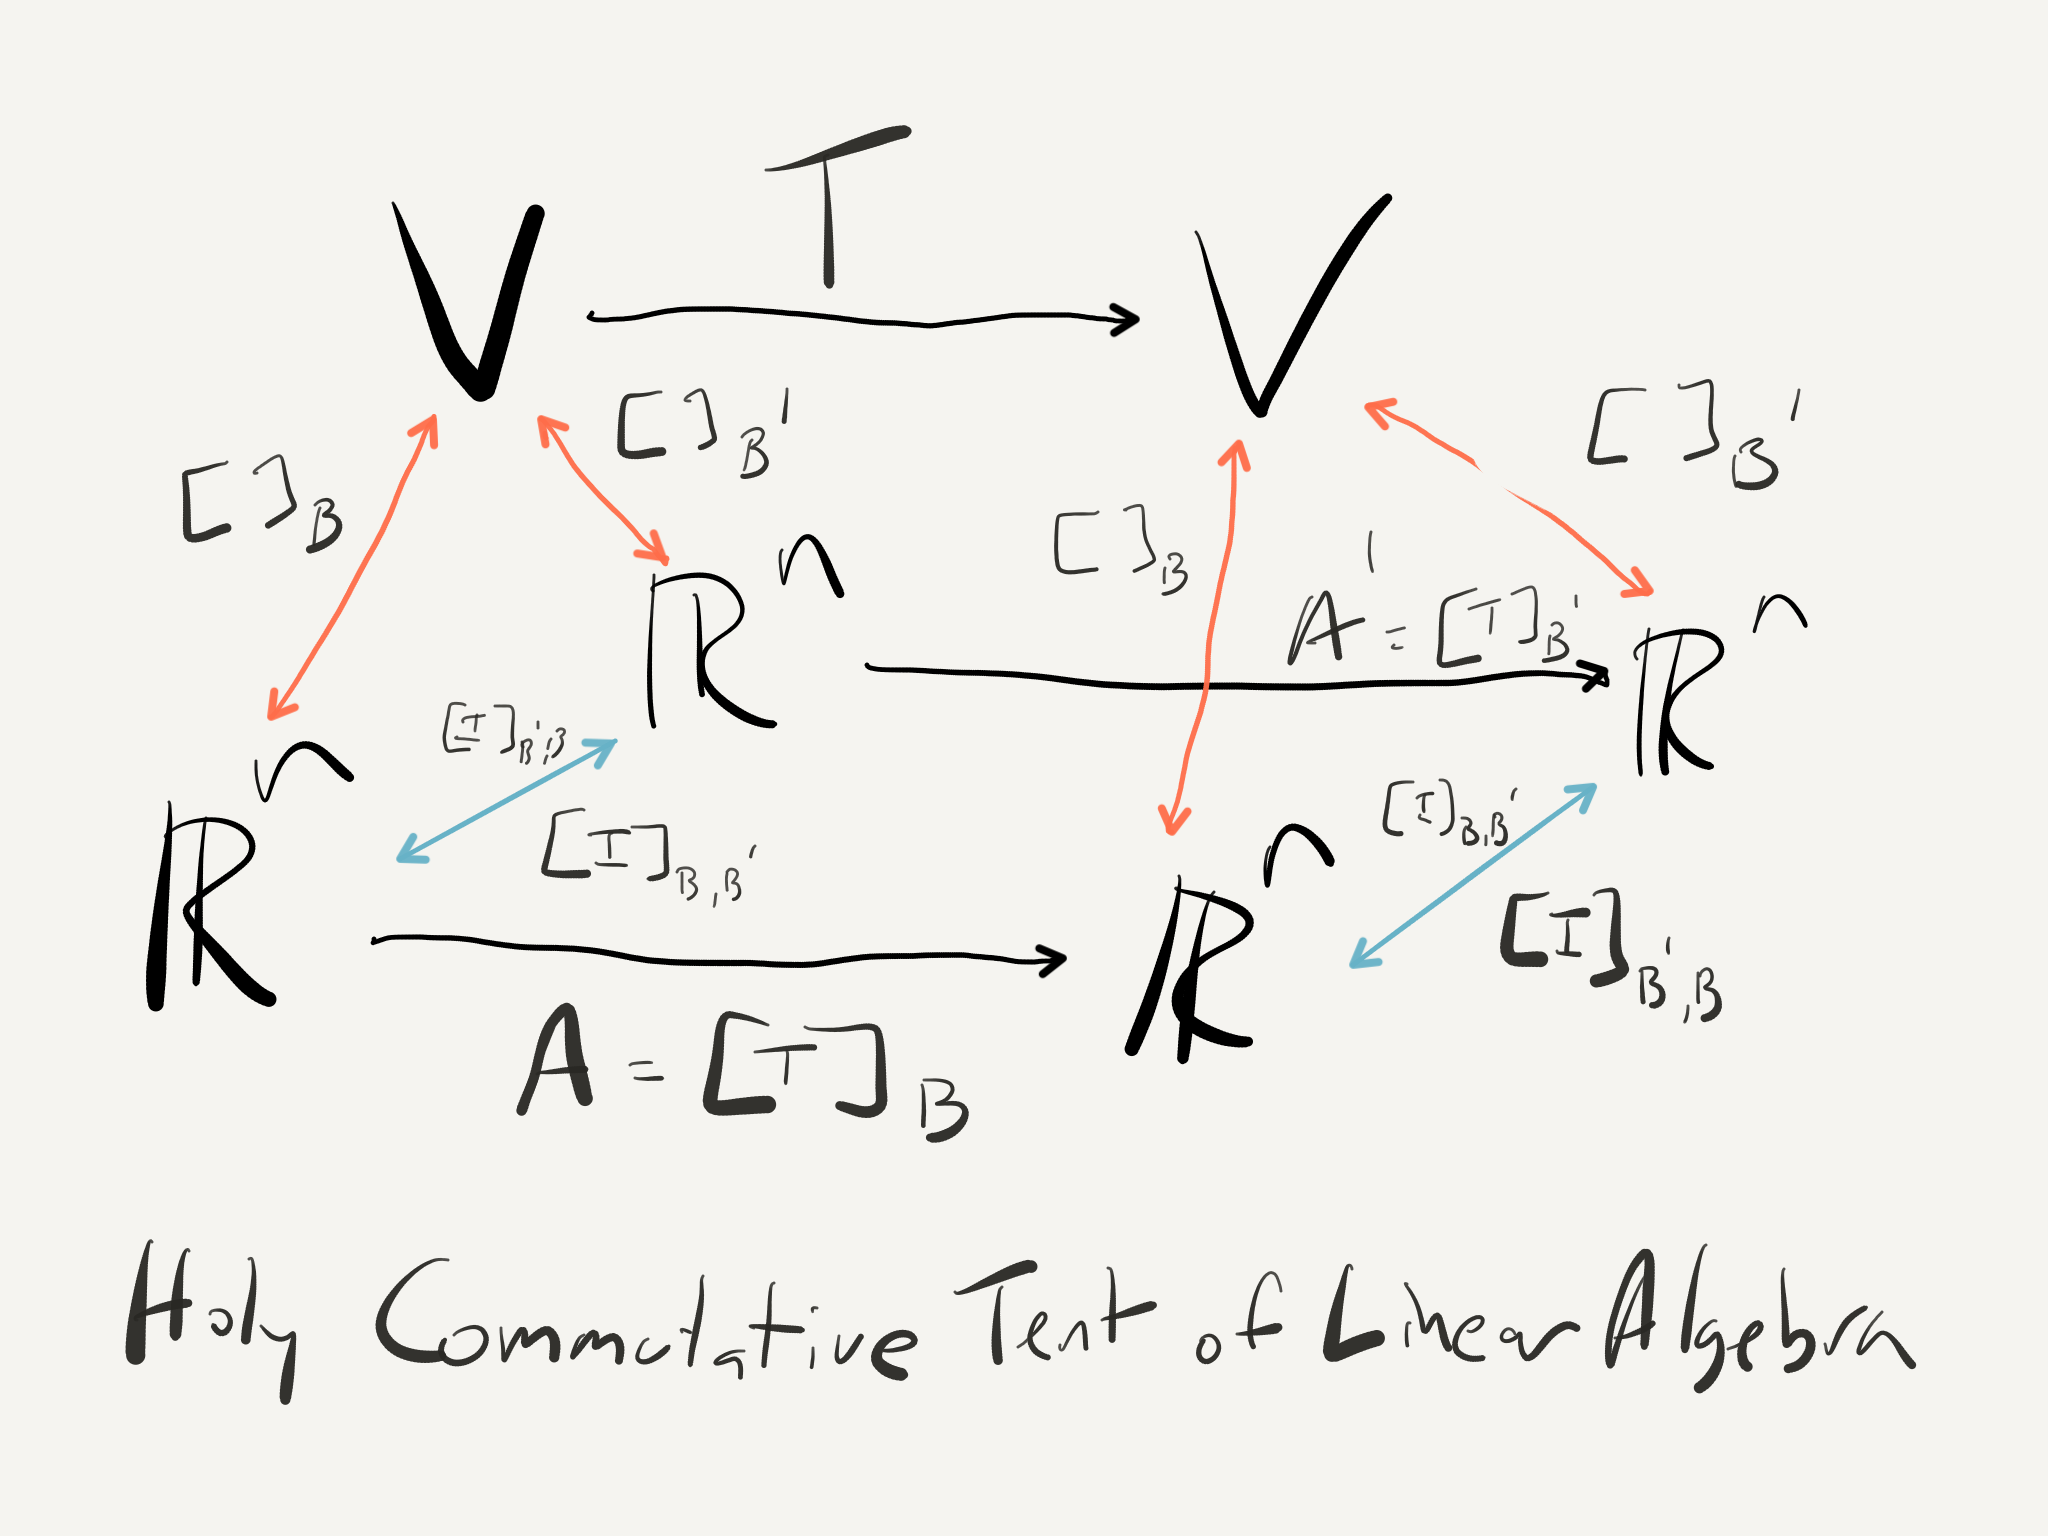 T
V V
[ ]_B [ ]_B' [ ]_B [ ]_B'
ℝⁿ A' = [T]_B' ℝⁿ
[I]_B',B [I]_B,B'
ℝⁿ [I]_B,B' ℝⁿ [I]_B',B
A = [T]_B
Holy Commutative Tent of Linear Algebra